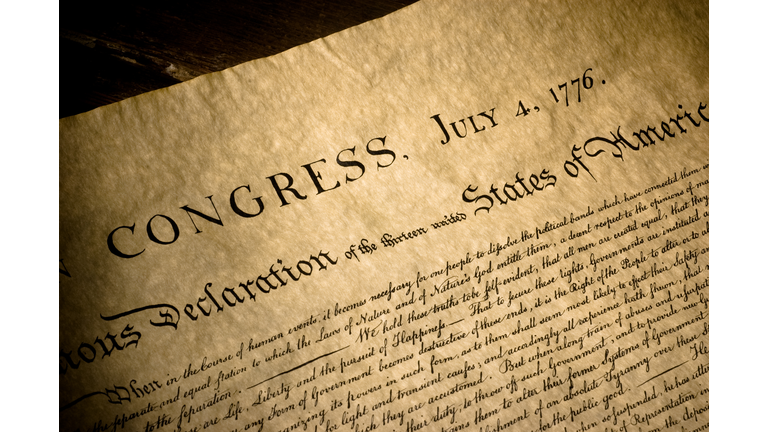 N CONGRESS, JULY 4, 1776.
mous Declaration of the thirteen united States of Americ
When in the Course of human events, it becomes necessary for one people to dissolve the political bands which have connected them
the separate and equal station to which the Laws of Nature and of Nature's God entitle them, a decent respect to the opinions of ma
to the separation. We hold these truths to be self-evident, that all men are created equal, that they
are Life, Liberty and the pursuit of Happiness. — That to secure these rights, Governments are instituted a
any Form of Government becomes destructive of these ends, it is the Right of the People to alter or to ab
organizing its powers in such form, as to them shall seem most likely to effect their Safety
for light and transient causes; and accordingly all experience hath shewn, that
which they are accustomed. But when a long train of abuses and usurpat
their duty, to throw off such Government, and to provide new
them to alter their former Systems of Government
establishment of an absolute Tyranny over these
for the public good. He
so suspended, he has utter
of Representation in
the depos